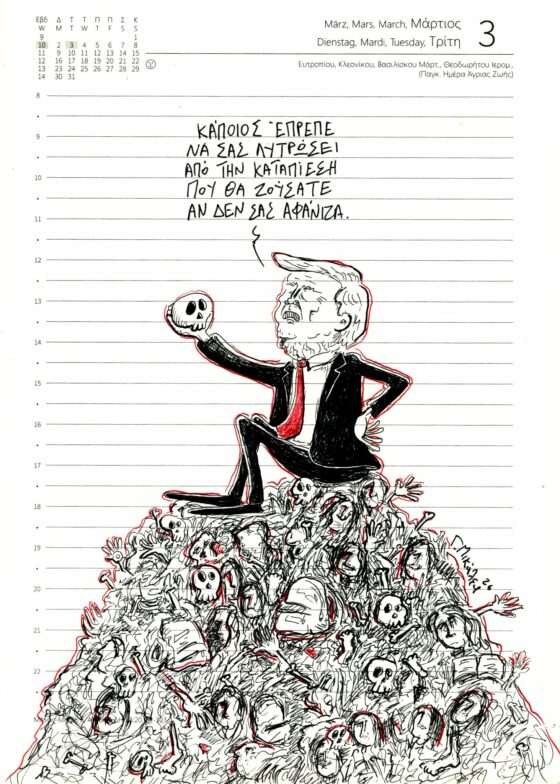 Εβδ Δ Τ Τ Π Π Σ Κ
W M T W T F S S
9 1
10 2 3 4 5 6 7 8
11 9 10 11 12 13 14 15
12 16 17 18 19 20 21 22
13 23 24 25 26 27 28 29
14 30 31
März, Mars, March, Μάρτιος
Dienstag, Mardi, Tuesday, Τρίτη
3
Ευτροπίου, Κλεονίκου, Βασιλίσκου Μάρτ., Θεοδωρήτου Ιερομ.,
(Παγκ. Ημέρα Άγριας Ζωής)
8
9
10
11
12
13
14
15
16
17
18
19
20
21
22
ΚΑΠΟΙΟΣ ΈΠΡΕΠΕ
ΝΑ ΣΑΣ ΛΥΤΡΩΣΕΙ
ΑΠΟ ΤΗΝ ΚΑΤΑΠΙΕΣΗ
ΠΟΥ ΘΑ ΖΟΥΣΑΤΕ
ΑΝ ΔΕΝ ΣΑΣ ΑΦΑΝΙΖΑ.